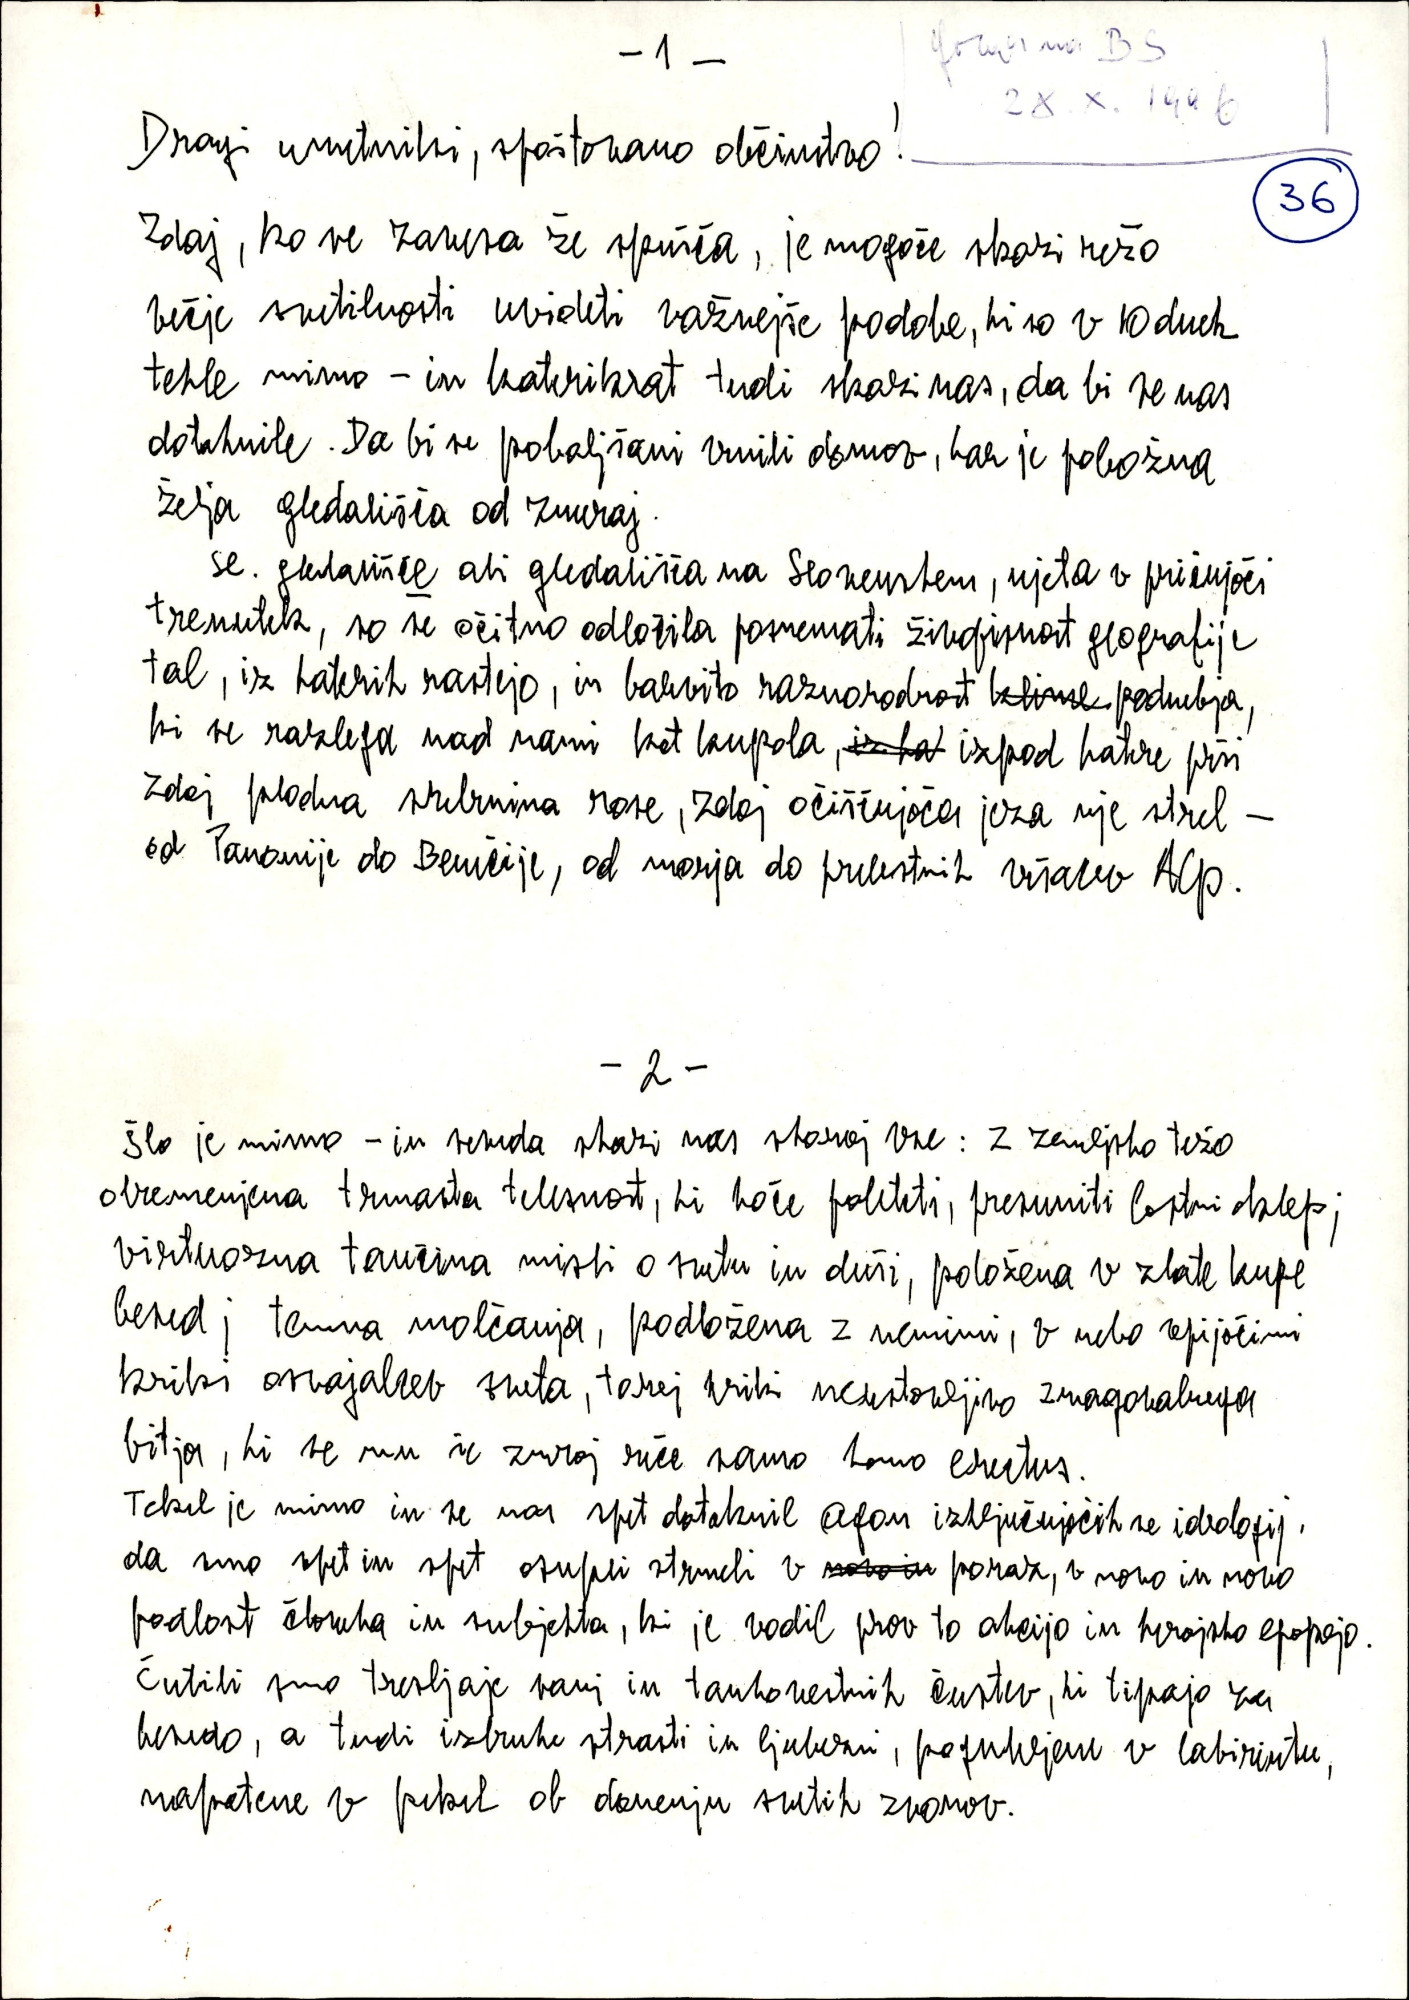 - 1 -
Govor na BS
28. X. 1996
36
Dragi umetniki, spoštovano občinstvo!
Zdaj, ko se zavesa že spušča, je mogoče skozi režo
večje svetilnosti uvideti važnejše podobe, ki so v 10 dneh
tekle mimo – in katerikrat tudi skozi nas, da bi se nas
dotaknile. Da bi se poboljšani vrnili domov, kar je pobožna
želja gledališča od zmeraj.
Sl. gledališče ali gledališča na Slovenskem, ujeta v pričujoči
trenutek, so se očitno odločila posnemati živopisnost geografije
tal, iz katerih rastejo, in barvito raznorodnost klime podnebja,
ki se razlega nad nami kot kupola, iz ka izpod katere prši
zdaj plodna srebrnina rose, zdaj očiščujoča jeza nje strel –
od Panonije do Benečije, od morja do prelestnih višavev Alp.
- 2 -
Šlo je mimo – in seveda skozi nas skoraj vse: z zemeljsko težo
obremenjena trmasta telesnost, ki hoče poleteti, presuniti lastni oklep;
virtuozna tančina misli o svetu in duši, položena v zlate kupe
besed; temna molčanja, podložena z nemimi, v nebo vpijočimi
kriki osvajalcev sveta, torej kriki neustavljivo zmagovalnega
bitja, ki se mu še zmeraj reče samo homo erectus.
Tekel je mimo in se nas spet dotaknil agon izključujočih se ideologij,
da smo spet in spet osupli strmeli v novo in poraz, v novo in novo
podlost človeka in subjekta, ki je vodil prav to akcijo in herojsko epopejo.
Čutili smo tresljaje sanj in tankovestnih čustev, ki tipajo za
besedo, a tudi izbruhe strasti in ljubezni, pogubljene v labirintu,
napotene v pekel ob donenju svetih zvonov.